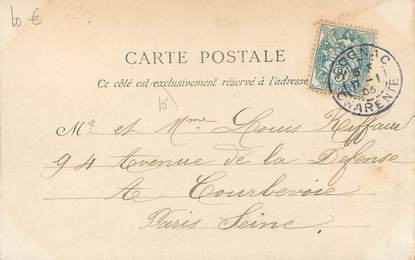 10 €
CARTE POSTALE
Ce côté est exclusivement réservé à l'adresse
COGNAC
CHARENTE
Mr et Mme Louis Reiffaud
94 Avenue de la Défense
A Courbevoie
Paris Seine.